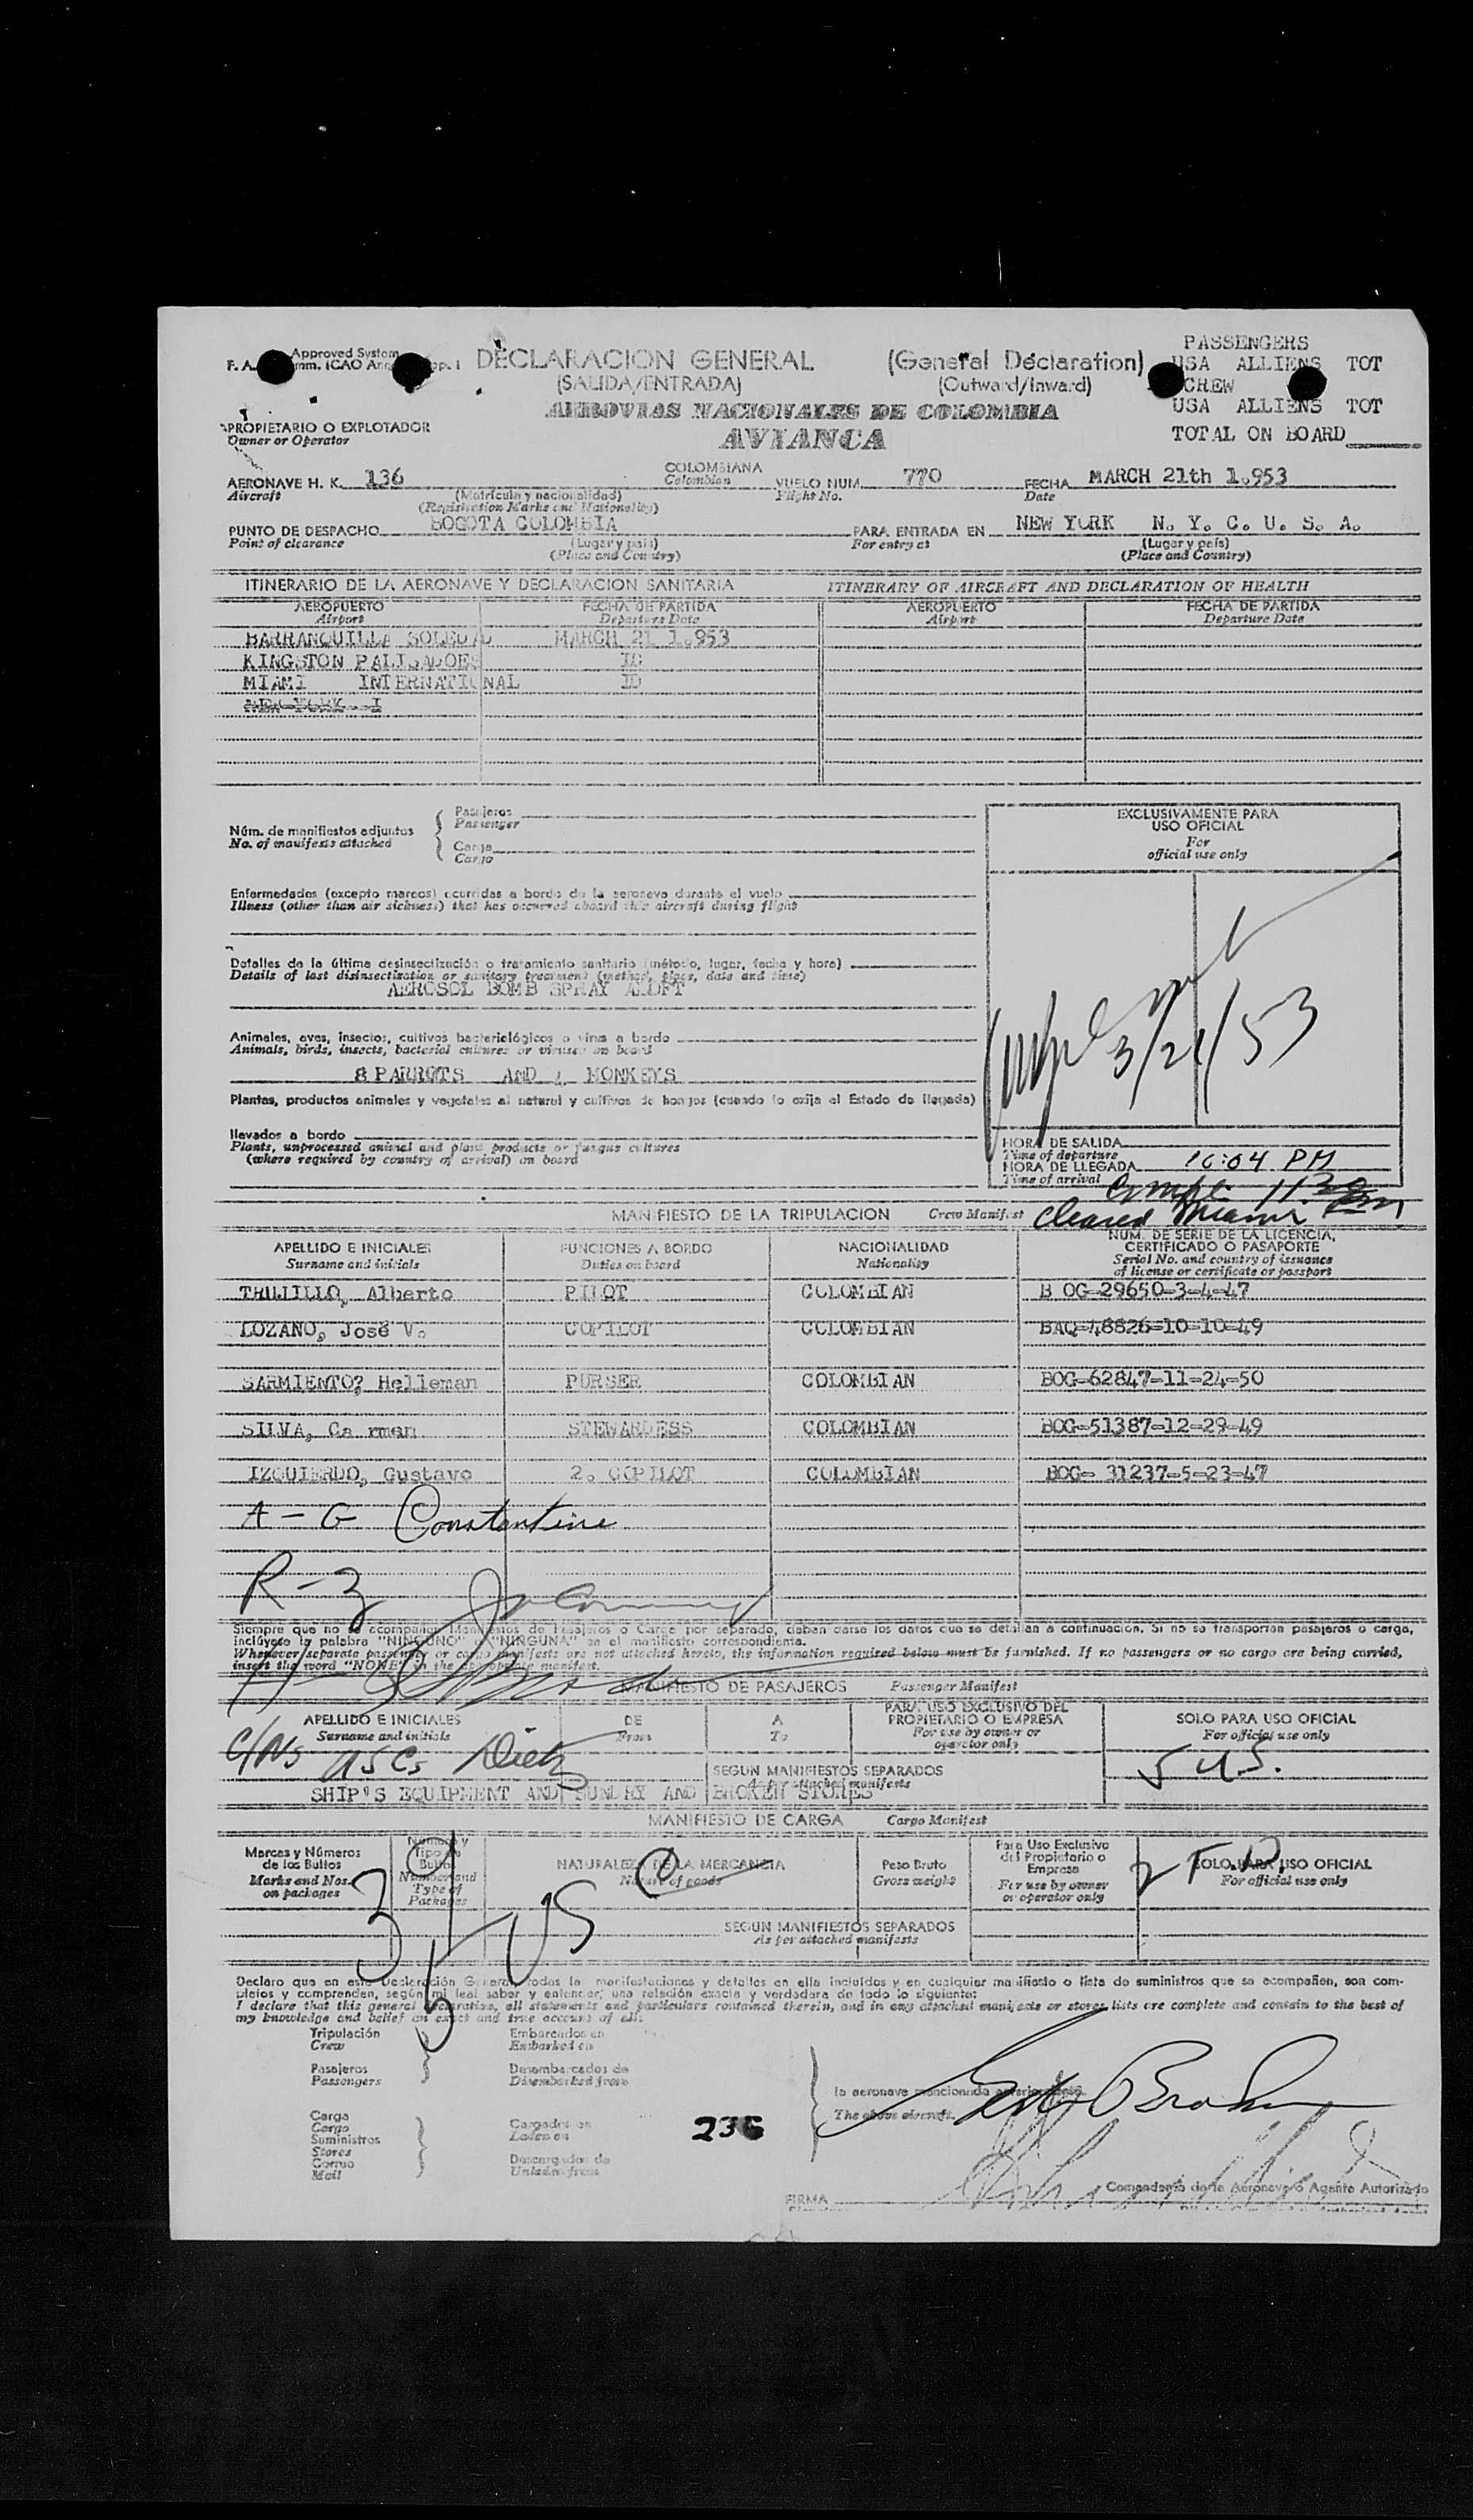 Approved System
F. A.
DECLARACION GENERAL (General Declaration)
(SALIDA/ENTRADA) (Outward/Inward)
PASSENGERS
USA ALLIENS TOT
CREW
USA ALLIENS TOT
TOTAL ON BOARD
AEROVIAS NACIONALES DE COLOMBIA
AVIANCA
PROPIETARIO O EXPLOTADOR
Owner or Operator
AERONAVE H. K. 136 COLOMBIANA VUELO NUM. 770 FECHA MARCH 21th 1.953
Aircraft (Matrícula y nacionalidad) Colombian Flight No. Date
(Registration Marks and Nationality)
PUNTO DE DESPACHO BOGOTA COLOMBIA PARA ENTRADA EN NEW YORK N. Y. C. U. S. A.
Point of clearance (Lugar y país) For entry at (Lugar y país)
(Place and Country) (Place and Country)
ITINERARIO DE LA AERONAVE Y DECLARACION SANITARIA ITINERARY OF AIRCRAFT AND DECLARATION OF HEALTH
AEROPUERTO FECHA DE PARTIDA AEROPUERTO FECHA DE PARTIDA
Airport Departure Date Airport Departure Date
BARRANQUILLA SOLEDAD MARCH 21 1.953
KINGSTON PALISADOES ID
MIAMI INTERNATIONAL ID
Núm. de manifiestos adjuntos
No. of manifests attached
Pasajeros
Passenger
Carga
Cargo
EXCLUSIVAMENTE PARA
USO OFICIAL
For
official use only
Enfermedades (excepto mareos) ocurridas a bordo de la aeronave durante el vuelo
Illness (other than air sickness) that has occurred aboard this aircraft during flight
Detalles de la última desinsectización o tratamiento sanitario (método, lugar, fecha y hora)
Details of last disinsectization or sanitary treatment (method, place, date and time)
AEROSOL BOMB SPRAY ALOFT
3/21/53
Animales, aves, insectos, cultivos bacteriológicos o virus a bordo
Animals, birds, insects, bacterial cultures or viruses on board
8 PARROTS AND MONKEYS
Plantas, productos animales y vegetales al natural y cultivos de hongos (cuando lo exija el Estado de llegada)
llevados a bordo
Plants, unprocessed animal and plant products or fungus cultures
(where required by country of arrival) on board
HORA DE SALIDA
Time of departure
HORA DE LLEGADA 10:04 PM
Time of arrival
Cleared Miami
MANIFIESTO DE LA TRIPULACION Crew Manifest
APELLIDO E INICIALES FUNCIONES A BORDO NACIONALIDAD NUM. DE SERIE DE LA LICENCIA, CERTIFICADO O PASAPORTE
Surname and initials Duties on board Nationality Serial No. and country of issuance of license or certificate or passport
TRILLILLO, Alberto PILOT COLOMBIAN B OG-29650-3-4-47
LOZANO, José V. COPILOT COLOMBIAN BAQ-48826-10-10-49
SARMIENTO? Helleman PURSER COLOMBIAN BOG-62847-11-24-50
SILVA, Ca rmen STEWARDESS COLOMBIAN BOG-51387-12-29-49
IZQUIERDO, Gustavo 2. COPILOT COLOMBIAN BOG- 31237-5-23-47
A - G Constantine
R - 3
Siempre que no se acompañen Manifiestos de Pasajeros o Carga por separado, deben darse los datos que se detallan a continuación. Si no se transportan pasajeros o carga,
inclúyase la palabra "NINGUNO" o "NINGUNA" en el manifiesto correspondiente.
Whenever separate passenger or cargo manifests are not attached hereto, the information required below must be furnished. If no passengers or no cargo are being carried,
insert the word "NONE" in the appropriate manifest.
MANIFIESTO DE PASAJEROS Passenger Manifest
APELLIDO E INICIALES DE A PARA USO EXCLUSIVO DEL PROPIETARIO O EMPRESA SOLO PARA USO OFICIAL
Surname and initials From To For use by owner or operator only For official use only
SEGUN MANIFIESTOS SEPARADOS
As per attached manifests
5 US.
SHIP'S EQUIPMENT AND SUNDRY AND BROKEN STORES
MANIFIESTO DE CARGA Cargo Manifest
Marcas y Números de los Bultos
Marks and Nos. on packages
Número y Tipo de Bultos
Number and Type of Packages
NATURALEZA DE LA MERCANCIA
Nature of goods
Peso Bruto
Gross weight
Para Uso Exclusivo del Propietario o Empresa
For use by owner or operator only
SOLO PARA USO OFICIAL
For official use only
SEGUN MANIFIESTOS SEPARADOS
As per attached manifests
Declaro que en esta Declaración General, todas las manifestaciones y detalles en ella incluídos y en cualquier manifiesto o lista de suministros que se acompañen, son com-
pletos y comprenden, según mi leal saber y entender, una relación exacta y verdadera de todo lo siguiente:
I declare that this general declaration, all statements and particulars contained therein, and in any attached manifests or stores lists are complete and contain to the best of
my knowledge and belief an exact and true account of all:
Tripulación Embarcados en
Crew Embarked on
Pasajeros Desembarcados de
Passengers Disembarked from
la aeronave mencionada anteriormente.
The above aircraft.
Carga Cargados en
Cargo Laden on
Suministros
Stores
Correo Descargados de
Mail Unladen from
236
Comandante de la Aeronave o Agente Autorizado
FIRMA